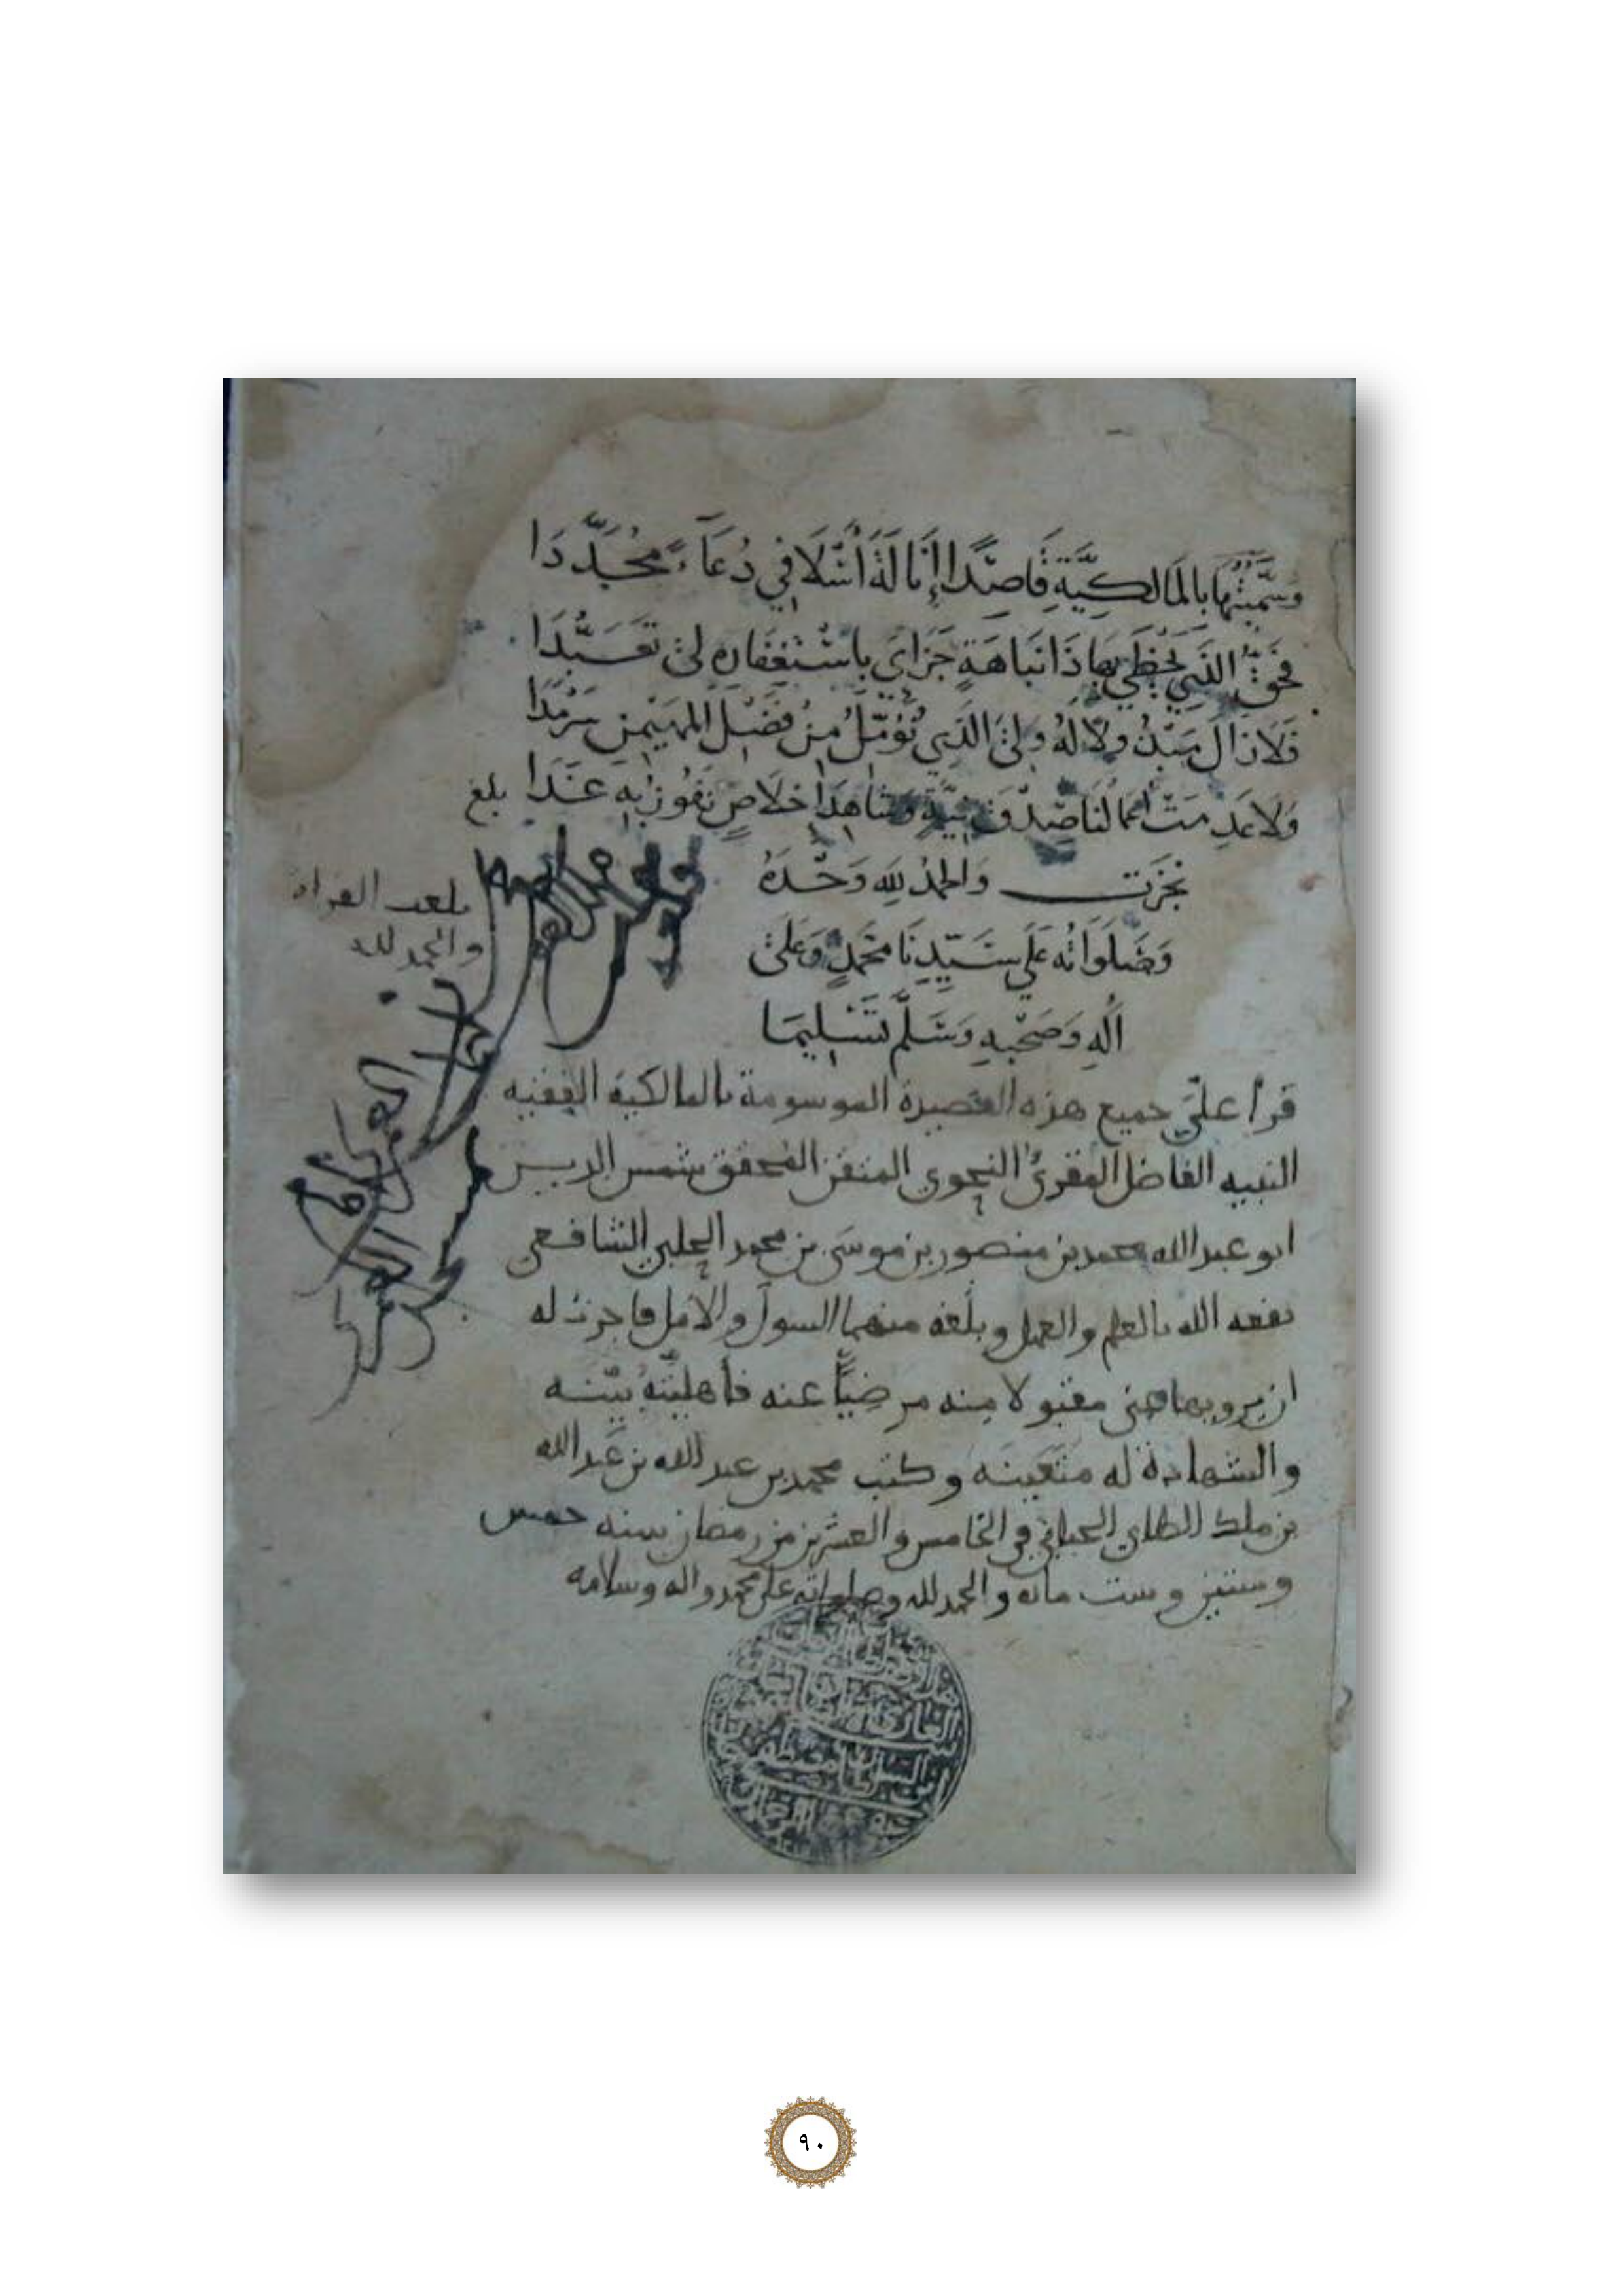 وَسَمَّيْتُهَا بِالمَالِكِيَّةِ قَاصِدًا إِنَالَةَ أَسْلَافِي دُعَاءً مُجَدَّدَا
فحق الذي يحظى بها ذا نباهة جزاى باستغفاره لى تعبدا
فلا زال مبدولا له ولى الذي نؤمل من فضل المهيمن سرمدا
ولا عدمت أعمالنا صدق نية وشاهد اخلاص نفوز به غدا بلغ
نجزت والحمد لله وحده
وصلواته على سيدنا محمد وعلى
اله وصحبه وسلم تسليما
بلغت القراة
والحمد لله
قرأ عليّ جميع هذه القصيدة الموسومة بالمالكية الفقيه
النبيه الفاضل المقرئ النحوي المتقن المحقق شمس الدين
ابو عبد الله محمد بن منصور بن موسى بن محمد الحلبي الشافعي
نفعه الله بالعلم والعمل وبلغه منهما السول والامل فاجزت له
ان يرويها عني مقبولا منه مرضيًّا عنه فأهليته بيّنه
والشهادة له متعينه وكتب محمد بن عبد الله بن عبد الله
بن ملك الطاي الجياني في الخامس والعشرين من رمضان سنه خمس
وستين وست مائه والحمد لله وصلواته على محمد واله وسلامه
٩٠